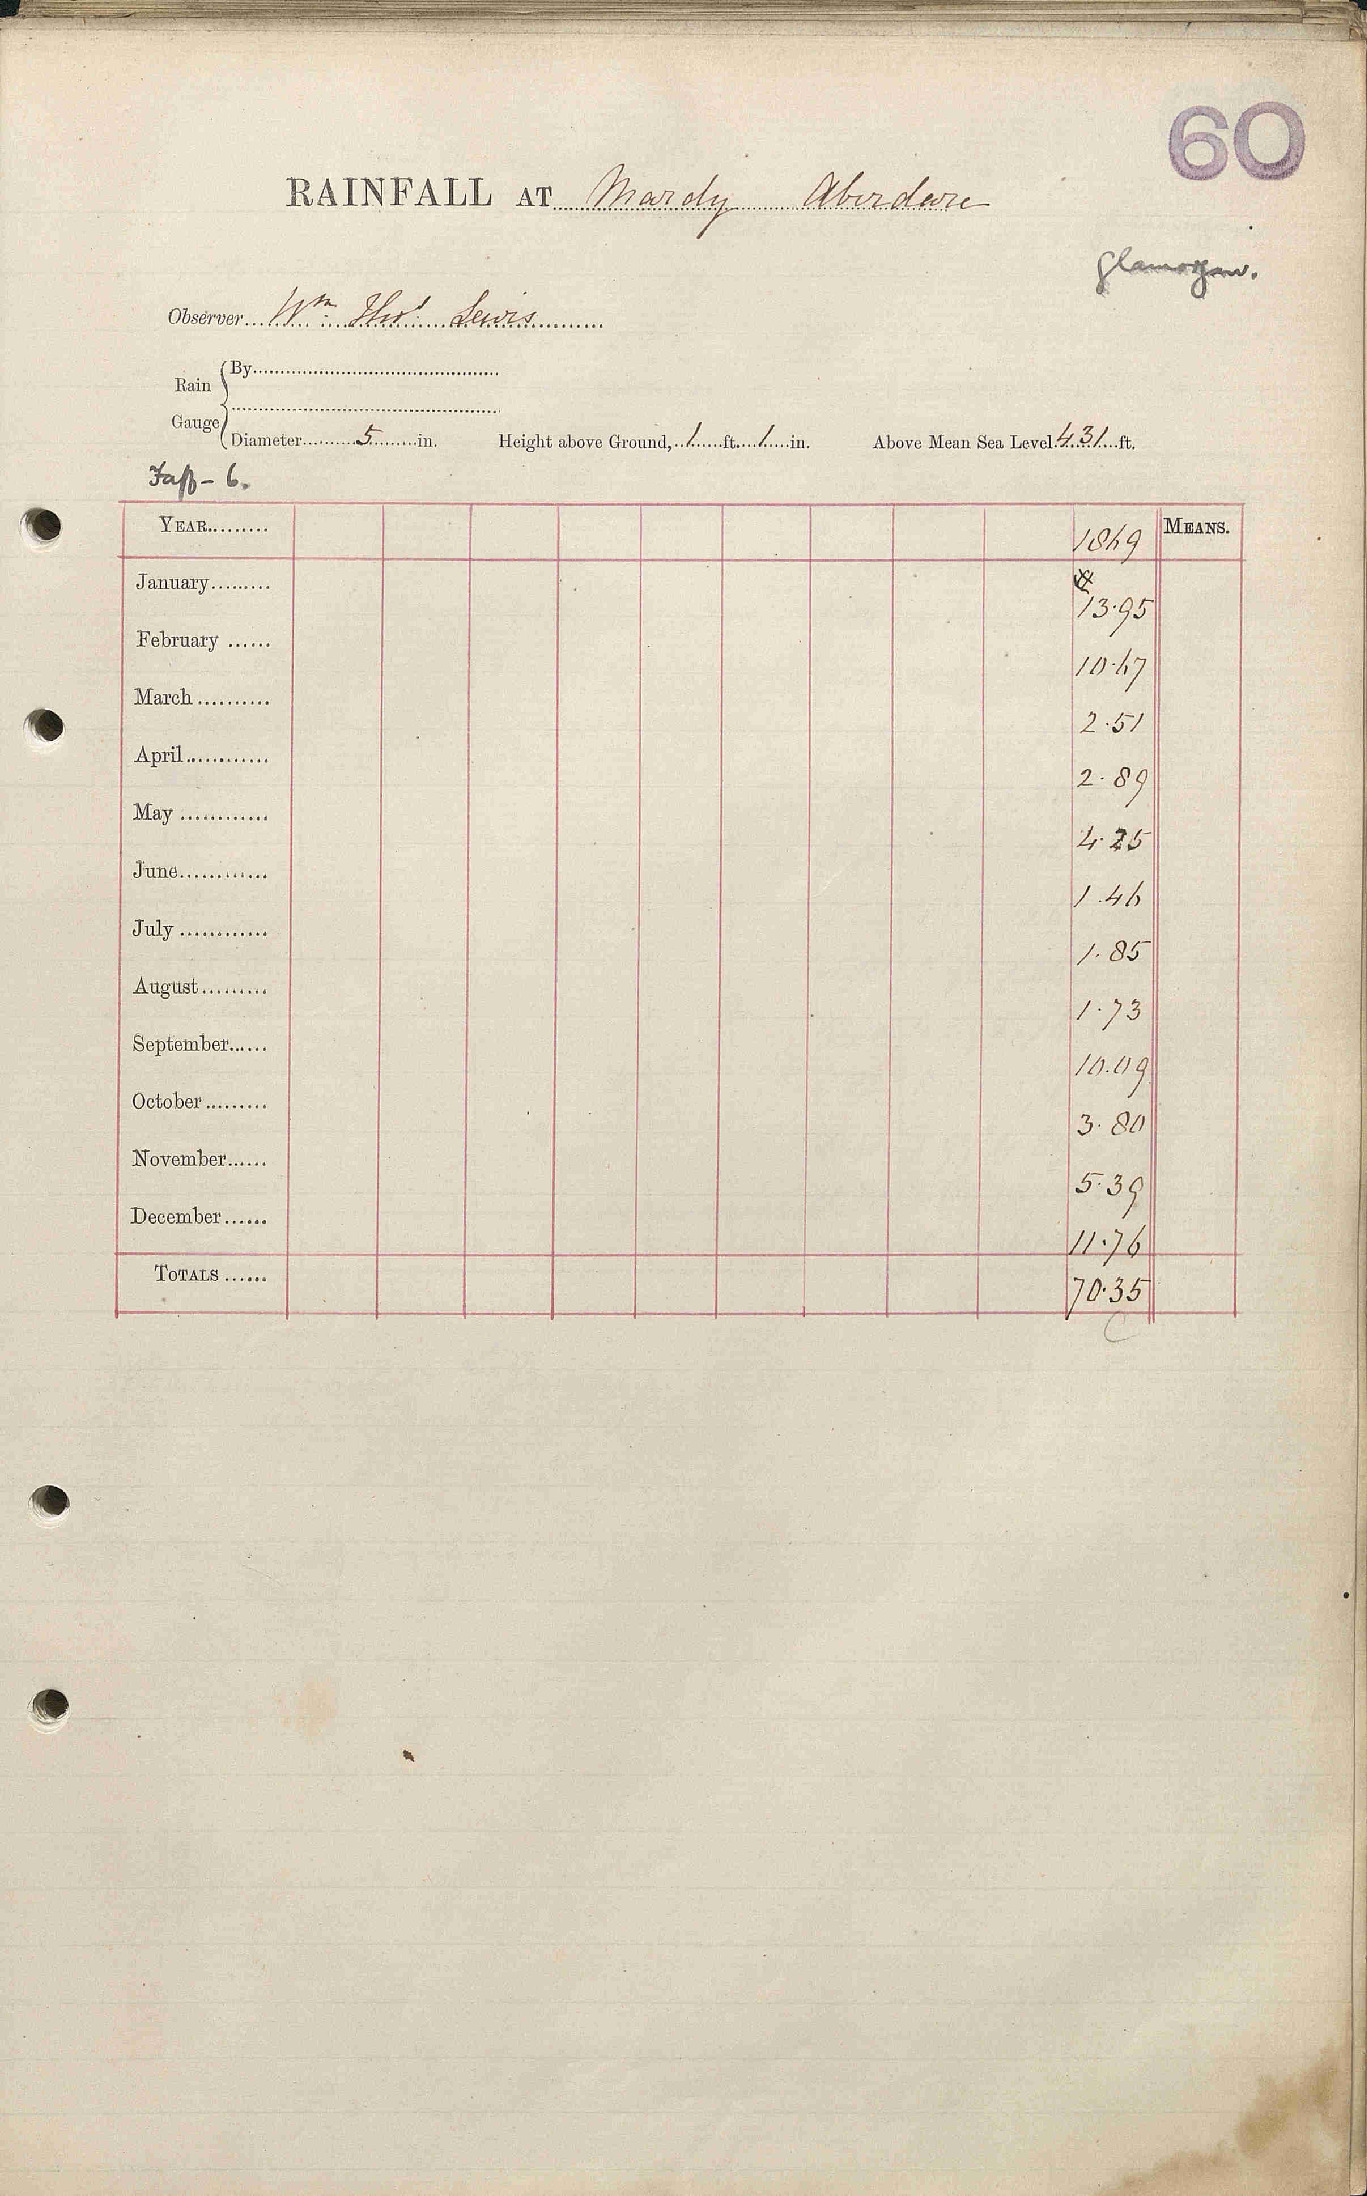 60
RAINFALL AT Mardy Aberdare
Glamorgan.
Observer Wm. Thos. Lewis
Rain Gauge
By
Diameter 5 in. Height above Ground, 1 ft. 1 in. Above Mean Sea Level 431 ft.
Taff - 6.
YEAR 1869 MEANS.
January 13.95
February 10.67
March 2.51
April 2.89
May 4.25
June 1.46
July 1.85
August 1.73
September 10.09
October 3.80
November 5.39
December 11.76
TOTALS 70.35
C